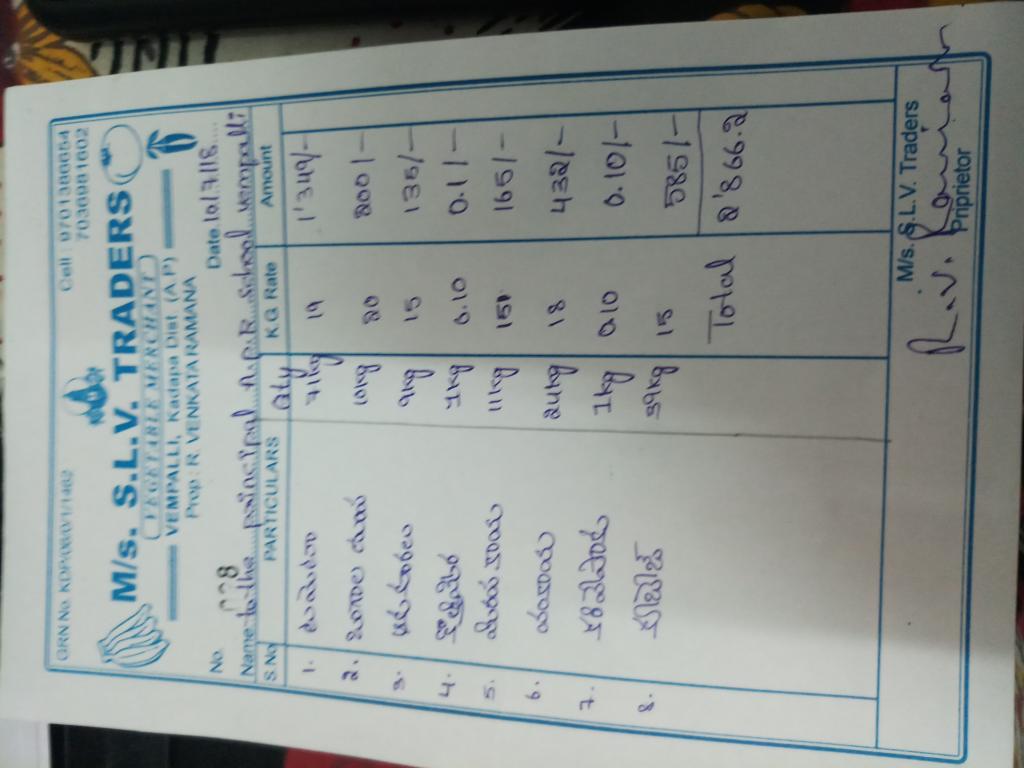 GRN No. KDP/06/01/1462 Cell : 9701386654
7036981602
M/s. S.L.V. TRADERS
VEGETABLE MERCHANT
VEMPALLI, Kadapa Dist. (A.P)
Prop : R. VENKATA RAMANA
No. 028 Date 10/7/18
Name to the principal A.p.R School vempalli
S.No PARTICULARS Qty K.G Rate Amount
1. టమాటా 71kg 19 1'349/-
2. 10kg 20 200/-
3. 9kg 15 135/-
4. 1kg 0.10 0.1/-
5. 11kg 15 165/-
6. 24kg 18 432/-
7. కరివేపాకు 1kg 0.10 0.10/-
8. 39kg 15 585/-
Total 2'866.2
M/s. S.L.V. Traders
R.V. Ramana
Priprietor